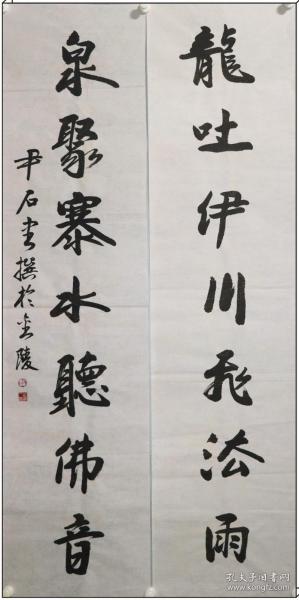 龍吐伊川飛法雨
泉聚寨水聽佛音
尹石書撰於金陵
孔夫子旧书网
www.kongfz.com